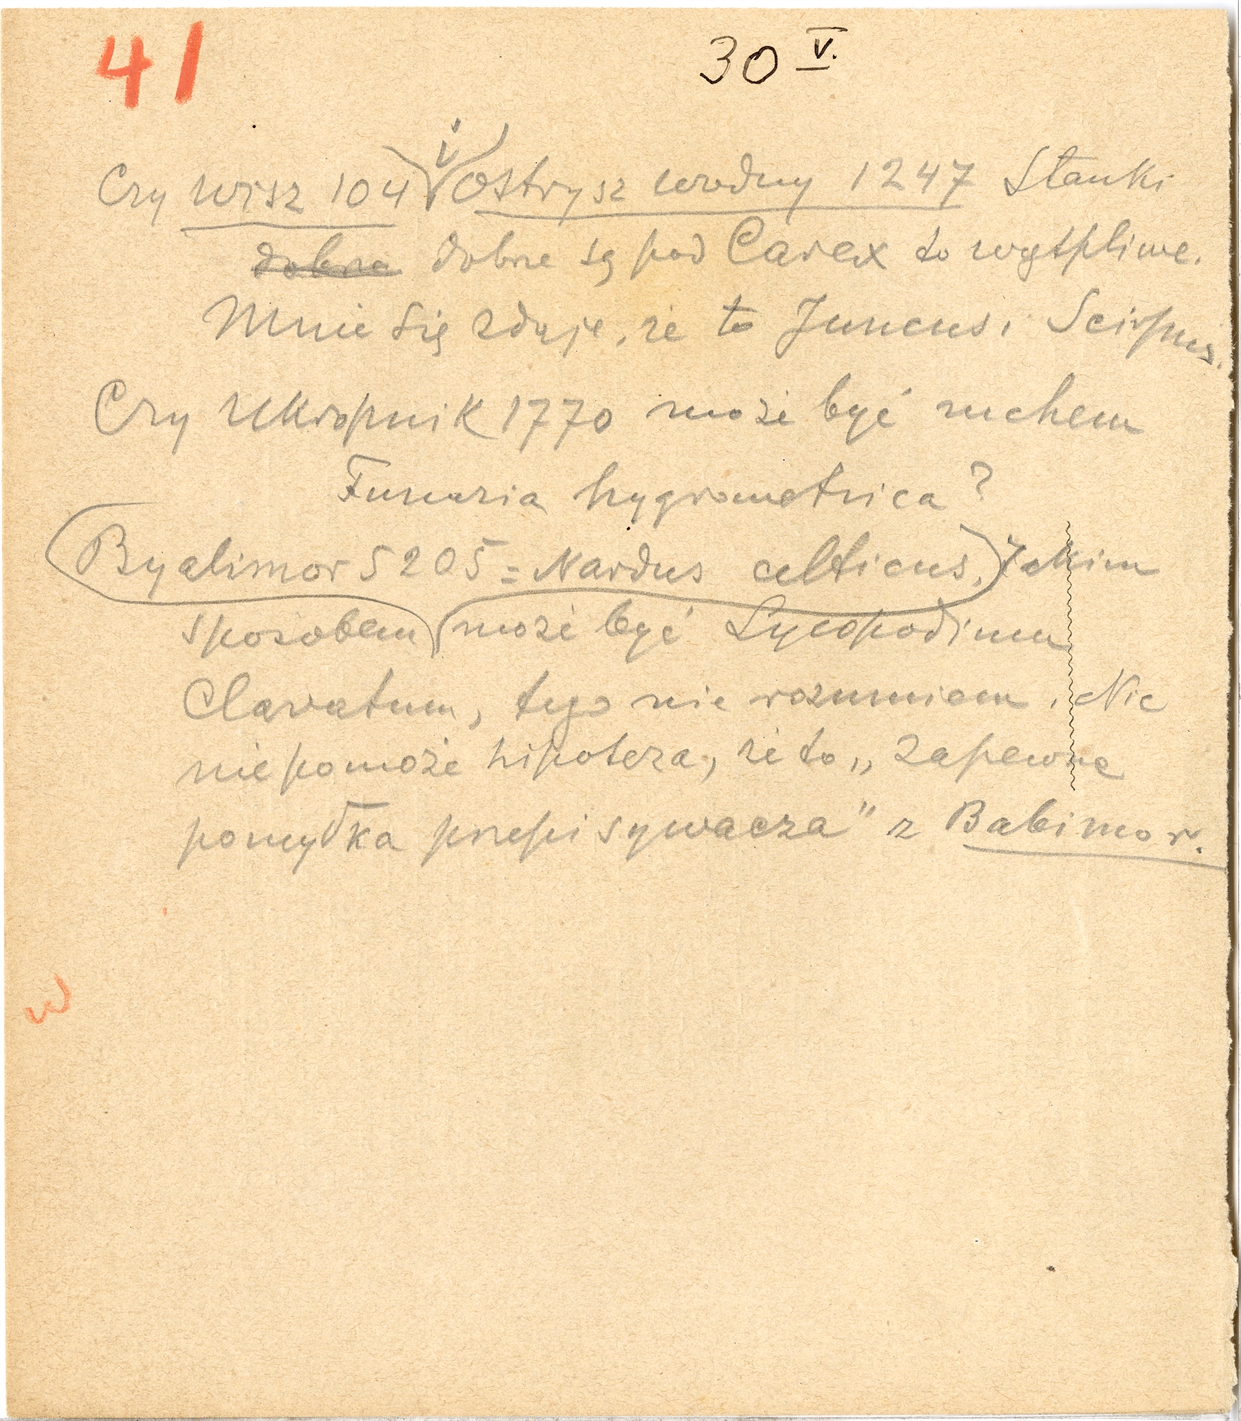 41
30 V.
Czy wisz 104 i Ostrysz wodny 1247 Stanki
dobre dobne są pod Carex to wątpliwe.
Mnie się zdaje, że to Juncus, Scirpus.
Czy Ukropnik 1770 może być mchem
Funaria hygrometrica?
Byalimor 5205 = Nardus celticus. Jakim
sposobem może być Lycopodium
Clavatum, tego nie rozumiem. Nic
nie pomoże hipoteza, że to „zapewne
pomyłka przepisywacza" z Babimor.
w